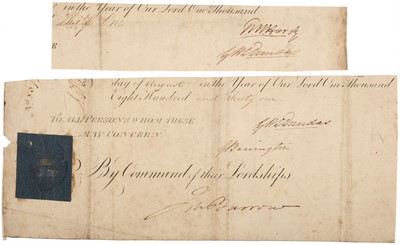 in the Year of Our Lord One Thousand
G H L Dundas
day of August in the Year of Our Lord One Thousand
Eight Hundred and thirty one.
TO ALL PERSONS WHOM THESE
MAY CONCERN.
G H L Dundas
S Barrington
By Command of their Lordships
Jno Barrow